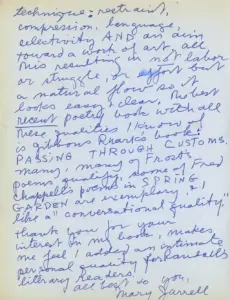 technique: restraint,
compression, language,
selectivity AND an aim
toward a work of art, all
this resulting in not labor
or struggle, or effort but
a natural flow so it
looks easy & clear. The best
recent poetry book with all
these qualities I know of
is Gibbons Ruark's book:
PASSING THROUGH CUSTOMS.
Many, many of Frost's
poems qualify, some of Fred
Chappell's poems in SPRING
GARDEN are exemplary, & I
like a "conversational quality"
thank you for your
interest in my book, makes
me feel I added an intimate
personal quality for
literary readers!
All best to you,
Mary Jarrell